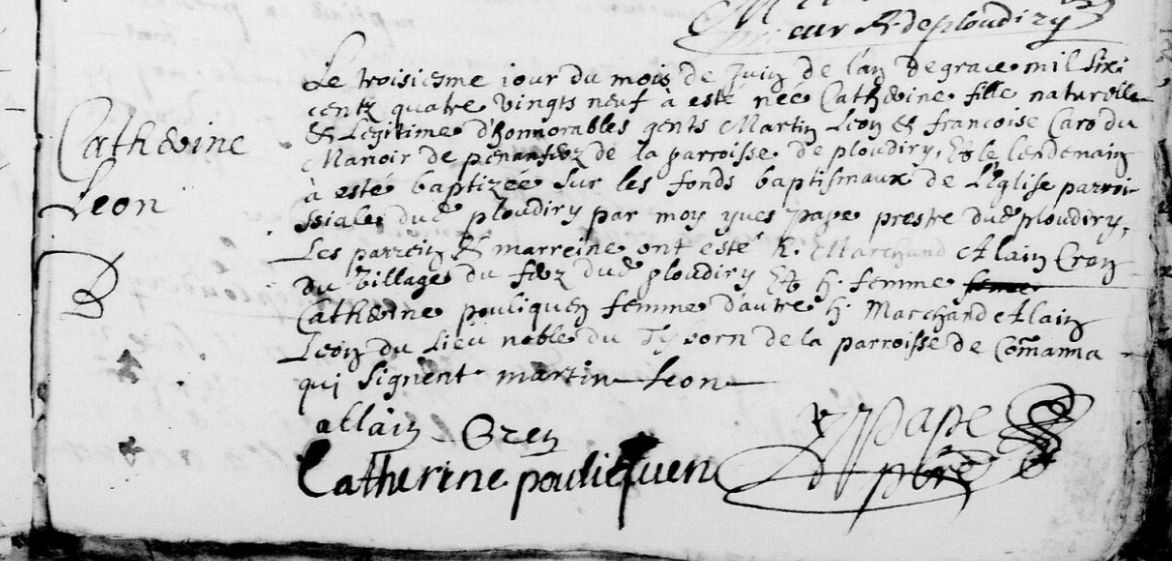 eur R. de ploudiry
Le troisiesme iour du mois de Juin de l'an de grace mil six
centz quatre vingts neuf à esté née Catherine fille naturelle
et Legitime d'honnorables gents Martin Leon et francoise Caro du
Manoir de penanfeoz de la parroisse de ploudiry, Et le lendemain
à esté baptizée sur les fonds baptismaux de L'Eglise parroi
ssiale dud ploudiry par moy yves pape prestre dud ploudiry,
Les parrein et marreine ont esté h. Marchand Alain
du Village du dud ploudiry Et h. femme
Catherine pouliquen femme d'autre h. Marchand Alain
Leon du Lieu noble du Tyvorn de la parroisse de Comanna
qui signent martin Leon
Catherine
Leon
B
allain
Y Pape
pbre
Catherine pouliquen